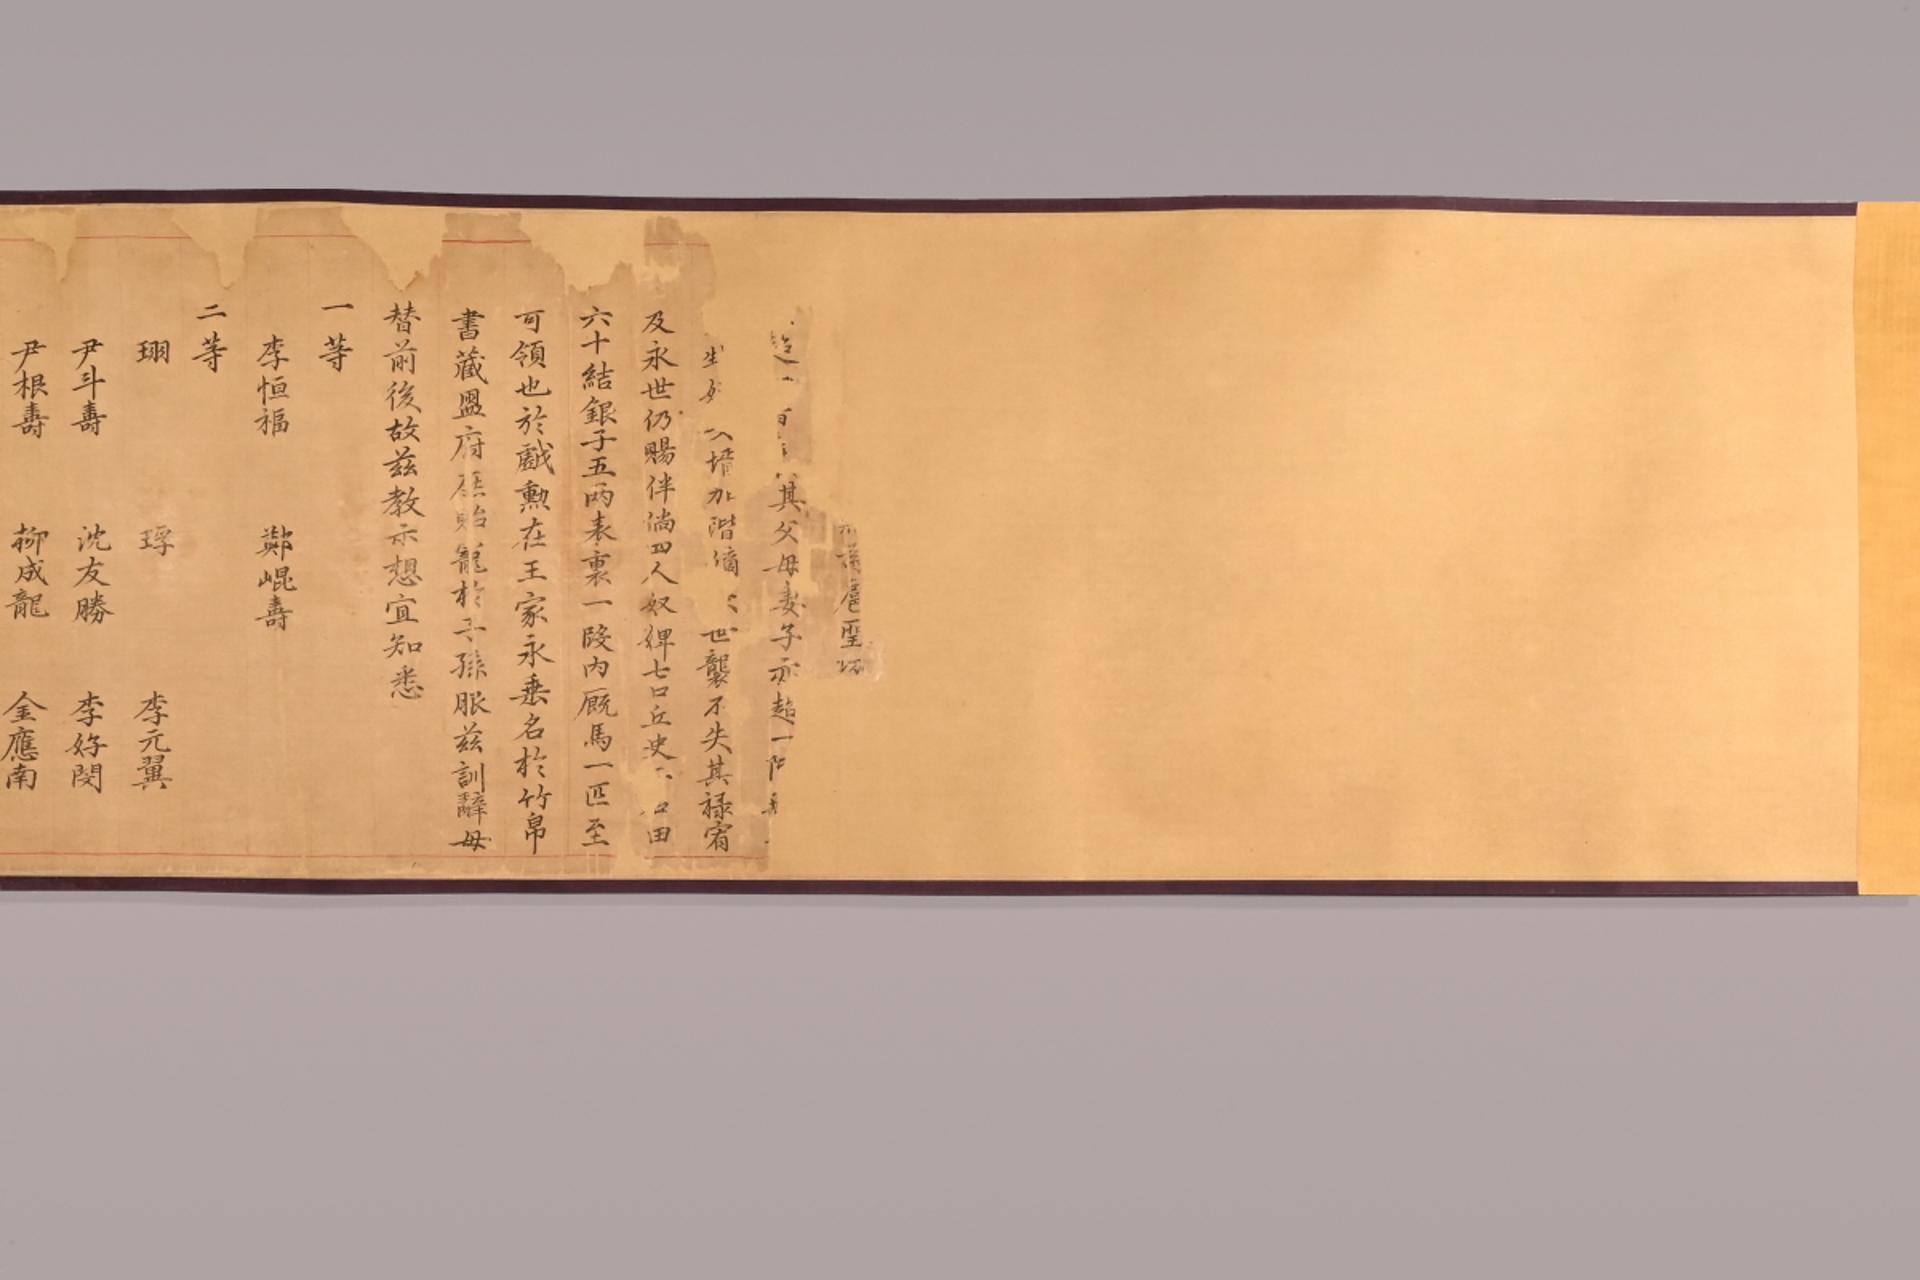 扈聖
其父母妻子亦超一階
生女 壻加階嫡 世襲不失其祿宥
及永世仍賜伴倘四人奴婢七口丘史 口田
六十結銀子五兩表裏一段內廐馬一匹至
可領也於戲勲在王家永垂名於竹帛
書藏盟府庶貽寵於子孫服茲訓辭毋
替前後故茲教示想宜知悉
一等
李恒福 鄭崐壽
二等
珝 琈 李元翼
尹斗壽 沈友勝 李好閔
尹根壽 柳成龍 金應南